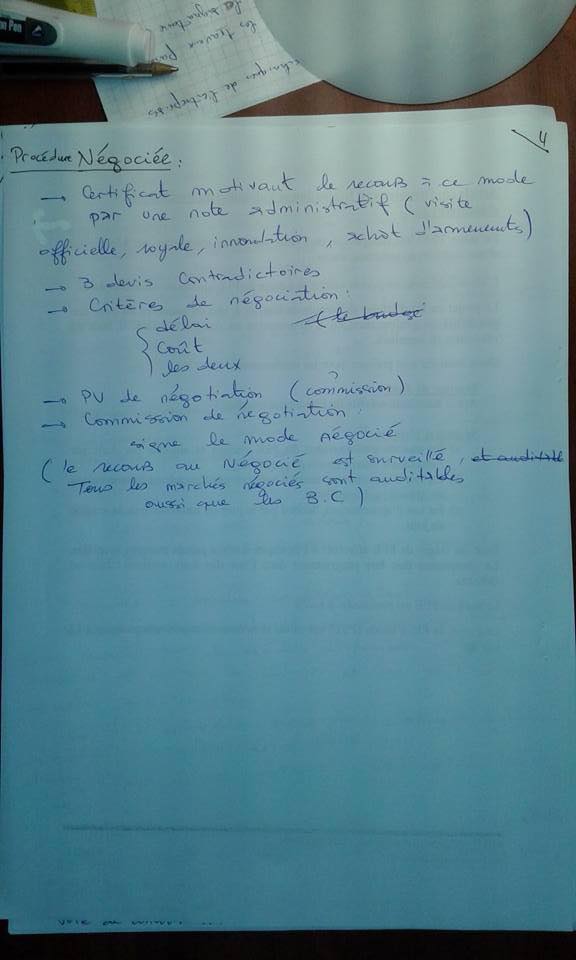 4
Procédure Négociée :
→ Certificat motivant le recours à ce mode
par une note administratif (visite
officielle, royale, innondation, achat d'armements)
→ 3 devis contradictoires
→ Critères de négociation :
délai
coût
les deux
→ PV de négotiation (commission)
→ Commission de negotiation :
signe le mode négocié
(le recours au Négocié est surveillé, et auditable
Tous les marchés négociés sont auditables
aussi que les B.C)
Pen
la signature
les travaux